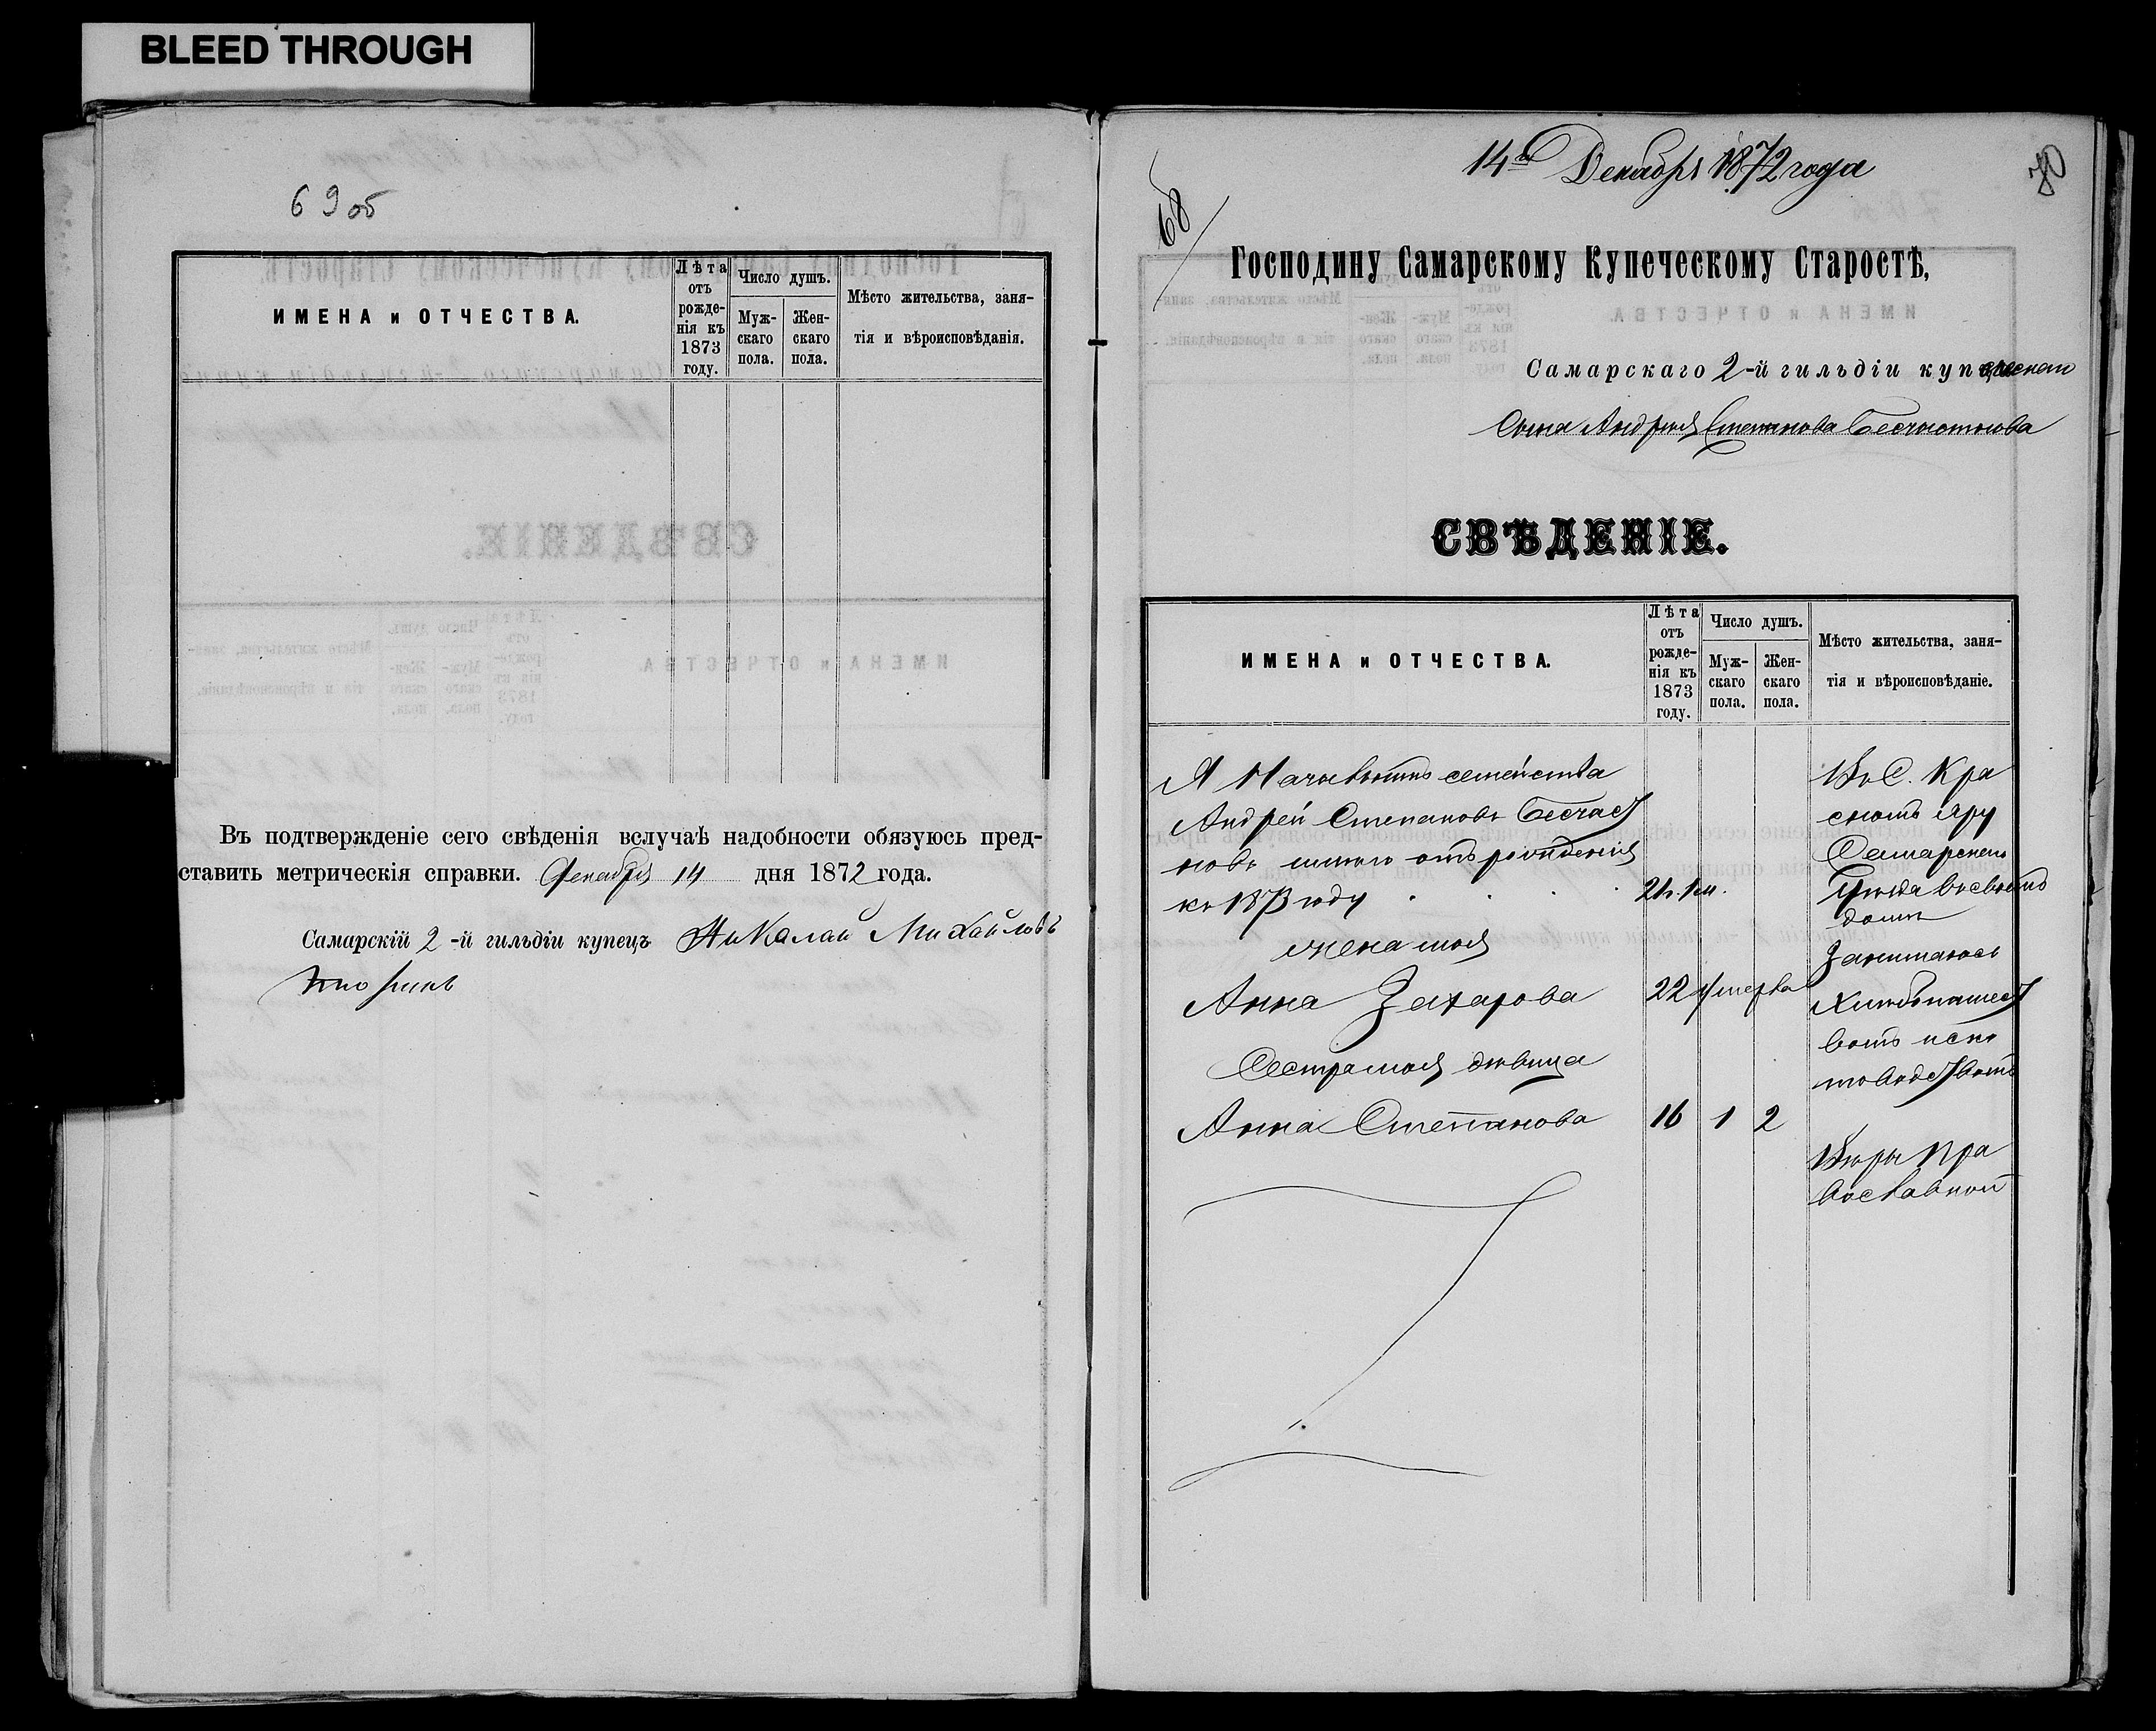 BLEED THROUGH
69 об
ИМЕНА и ОТЧЕСТВА.
Лѣта отъ рожденія къ 1873 году.
Число душъ.
Мужскаго пола.
Женскаго пола.
Мѣсто жительства, заня-
тія и вѣроисповѣданія.
Въ подтвержденіе сего свѣденія вслучаѣ надобности обязуюсь пред-
ставить метрическія справки. Декабря 14 дня 1872 года.
Самарскій 2-й гильдіи купецъ Николай Михайловъ
14го Декабря 1872 года
70
68
Господину Самарскому Купеческому Старостѣ,
Самарскаго 2-й гильдіи купческаго
Сына Андрея Степанова Бесчастнова
СВѢДЕНІЕ.
ИМЕНА и ОТЧЕСТВА.
Лѣта отъ рожденія къ 1873 году.
Число душъ.
Мужскаго пола.
Женскаго пола.
Мѣсто жительства, заня-
тія и вѣроисповѣданіе.
Я Началникъ семейства
Андрей Степановъ Бесчаст
новъ имею отъ рождения
къ 1873 году 21
жена моя
Анна Захарова 22 умерла
Сестра моя девица
Анна Степанова 16 1 2
Въ С. Кра
сномъ Яру
Самарскаго
Уезда Восвоемъ
доме
Занимаюсь
Хлебопашест
вомъ иско
товодствомъ
Веры Пра
вославной